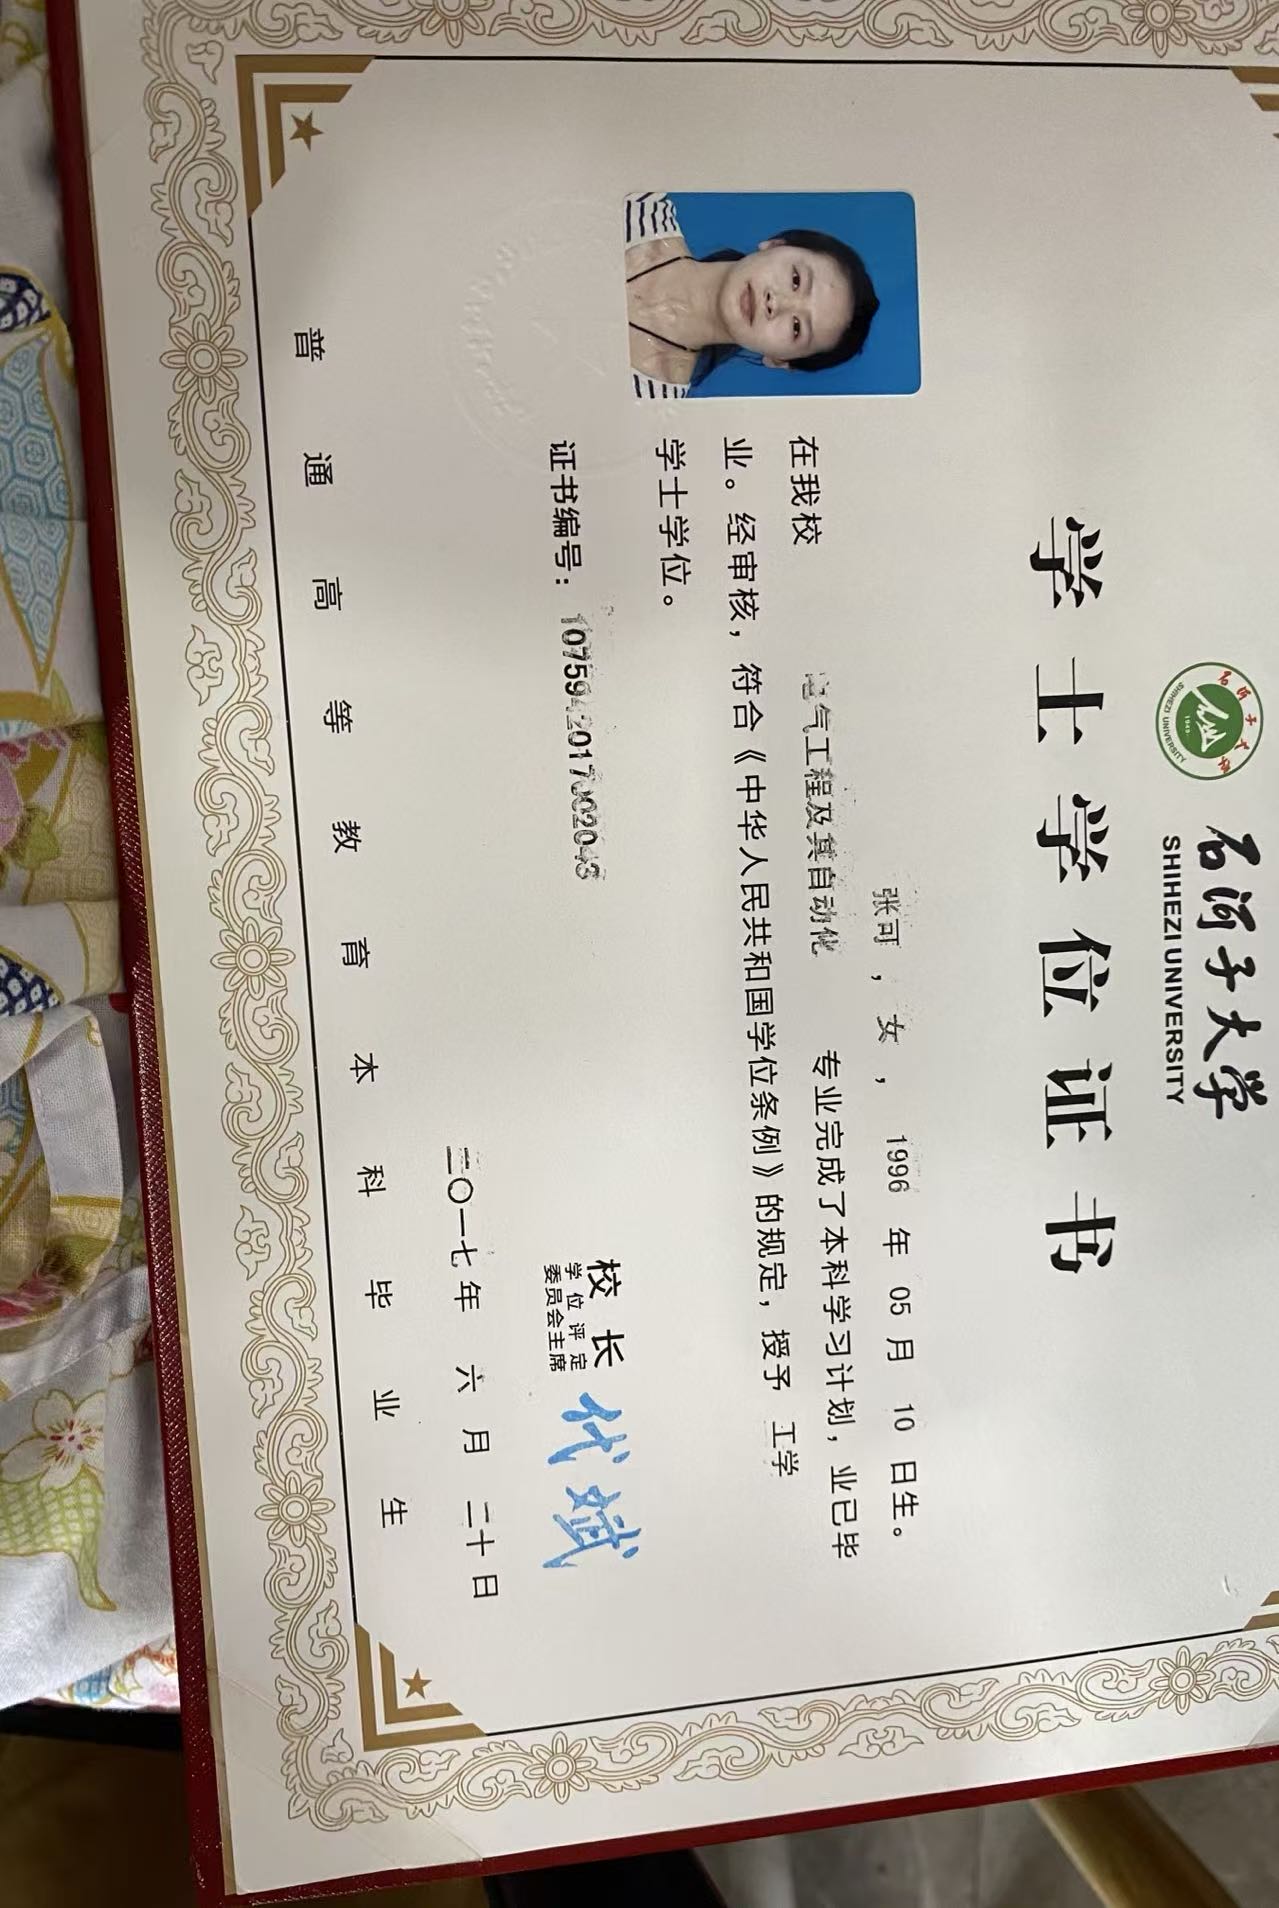 石河子大学
SHIHEZI UNIVERSITY
学士学位证书
张可，女，1996年05月10日生。
在我校 电气工程及其自动化 专业完成了本科学习计划，业已毕
业。经审核，符合《中华人民共和国学位条例》的规定，授予 工学
学士学位。
校长
学位评定
委员会主席
代斌
证书编号：1075942017002043
二〇一七年 六月 二十日
普通高等教育本科毕业生